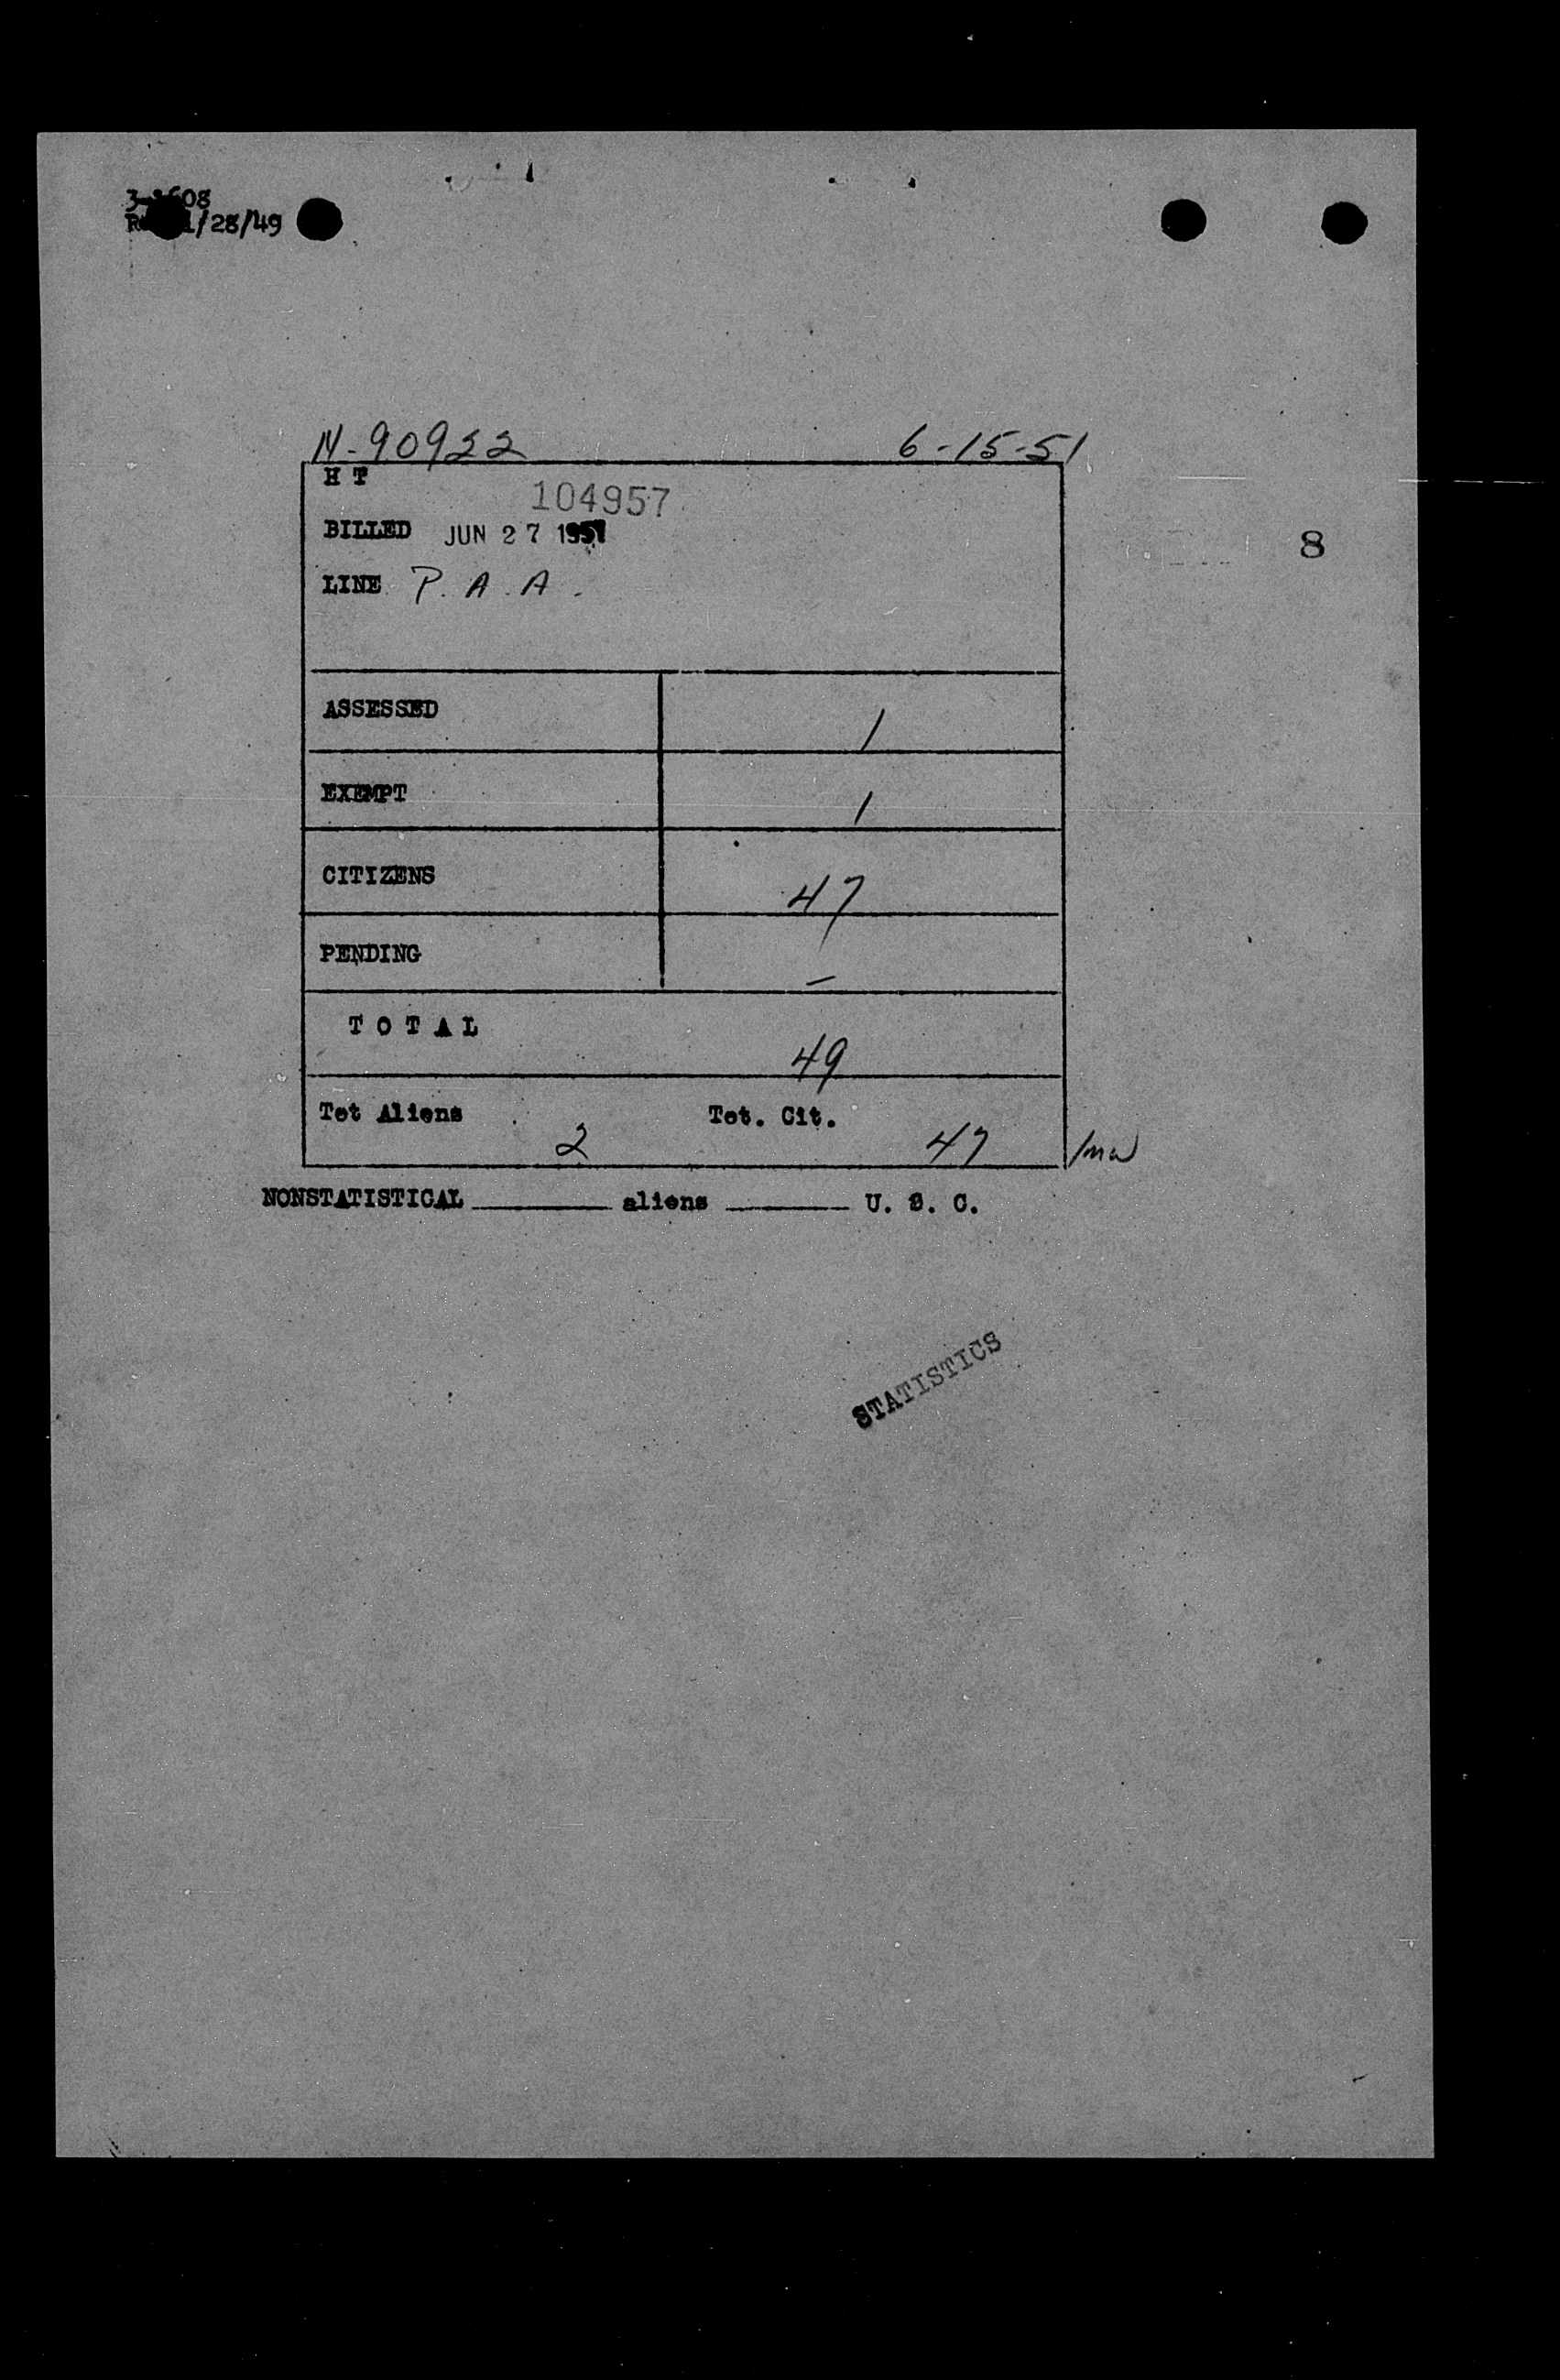 3-1608
1/28/49
N-90922 6-15-51
H T
104957
BILLED JUN 27 1951
8
LINE P. A. A.
ASSESSED 1
EXEMPT 1
CITIZENS 47
PENDING –
T O T A L 49
Tot Aliens 2 Tot. Cit. 47 /mw
NONSTATISTICAL ________ aliens ________ U. S. C.
STATISTICS